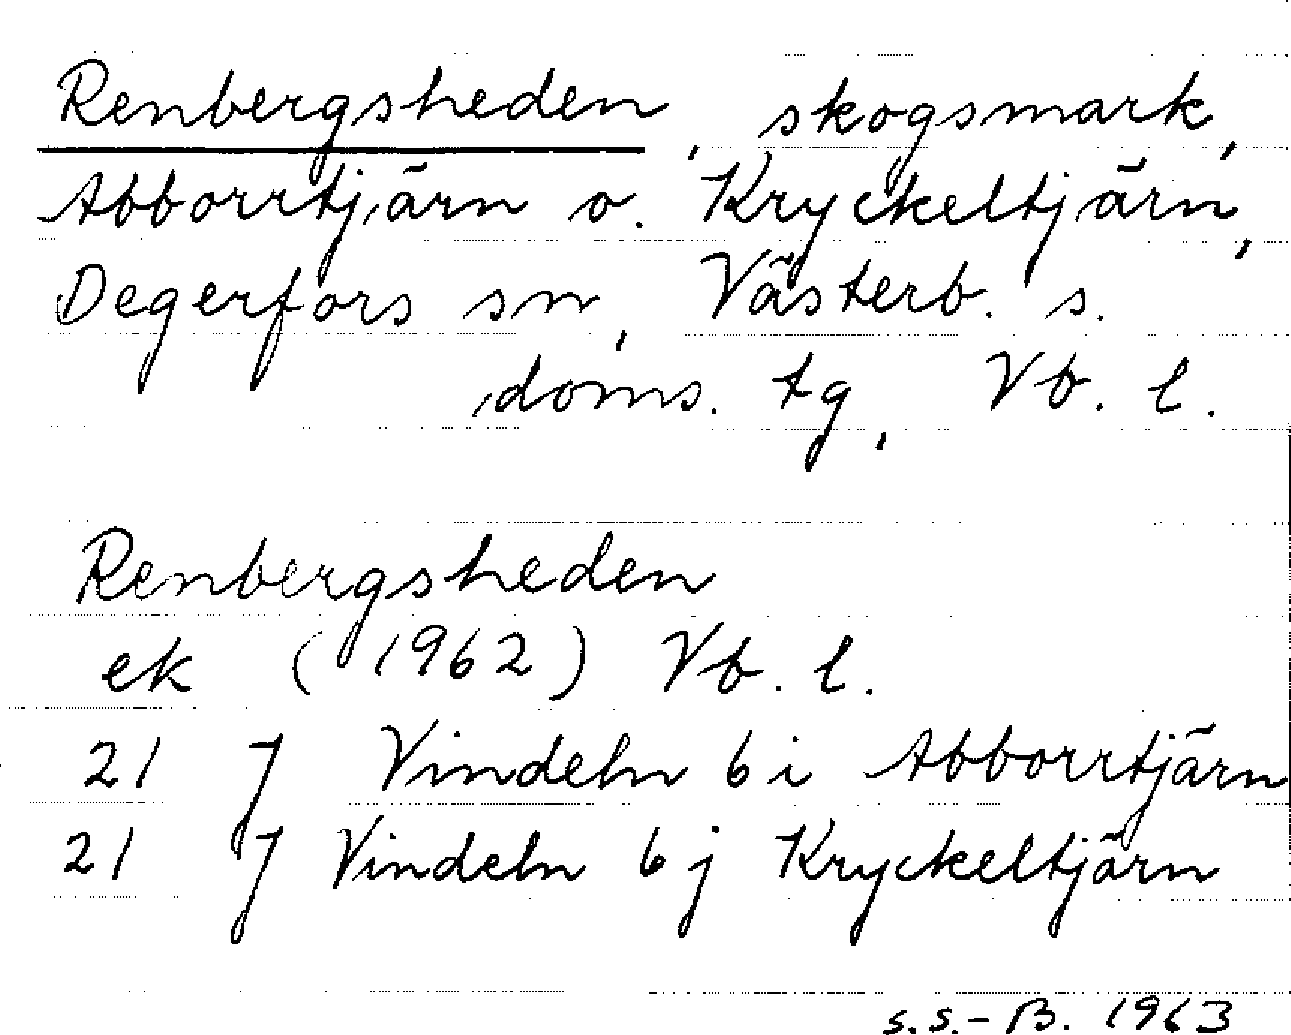 Renbergsheden, skogsmark,
Abborrtjärn o. Kryckeltjärn,
Degerfors sn, Västerb. s.
doms. tg, Vb. l.
Renbergsheden
ek (1962) Vb. l.
21 J Vindeln 6 i Abborrtjärn
21 J Vindeln 6 j Kryckeltjärn
s.s.-B. 1963